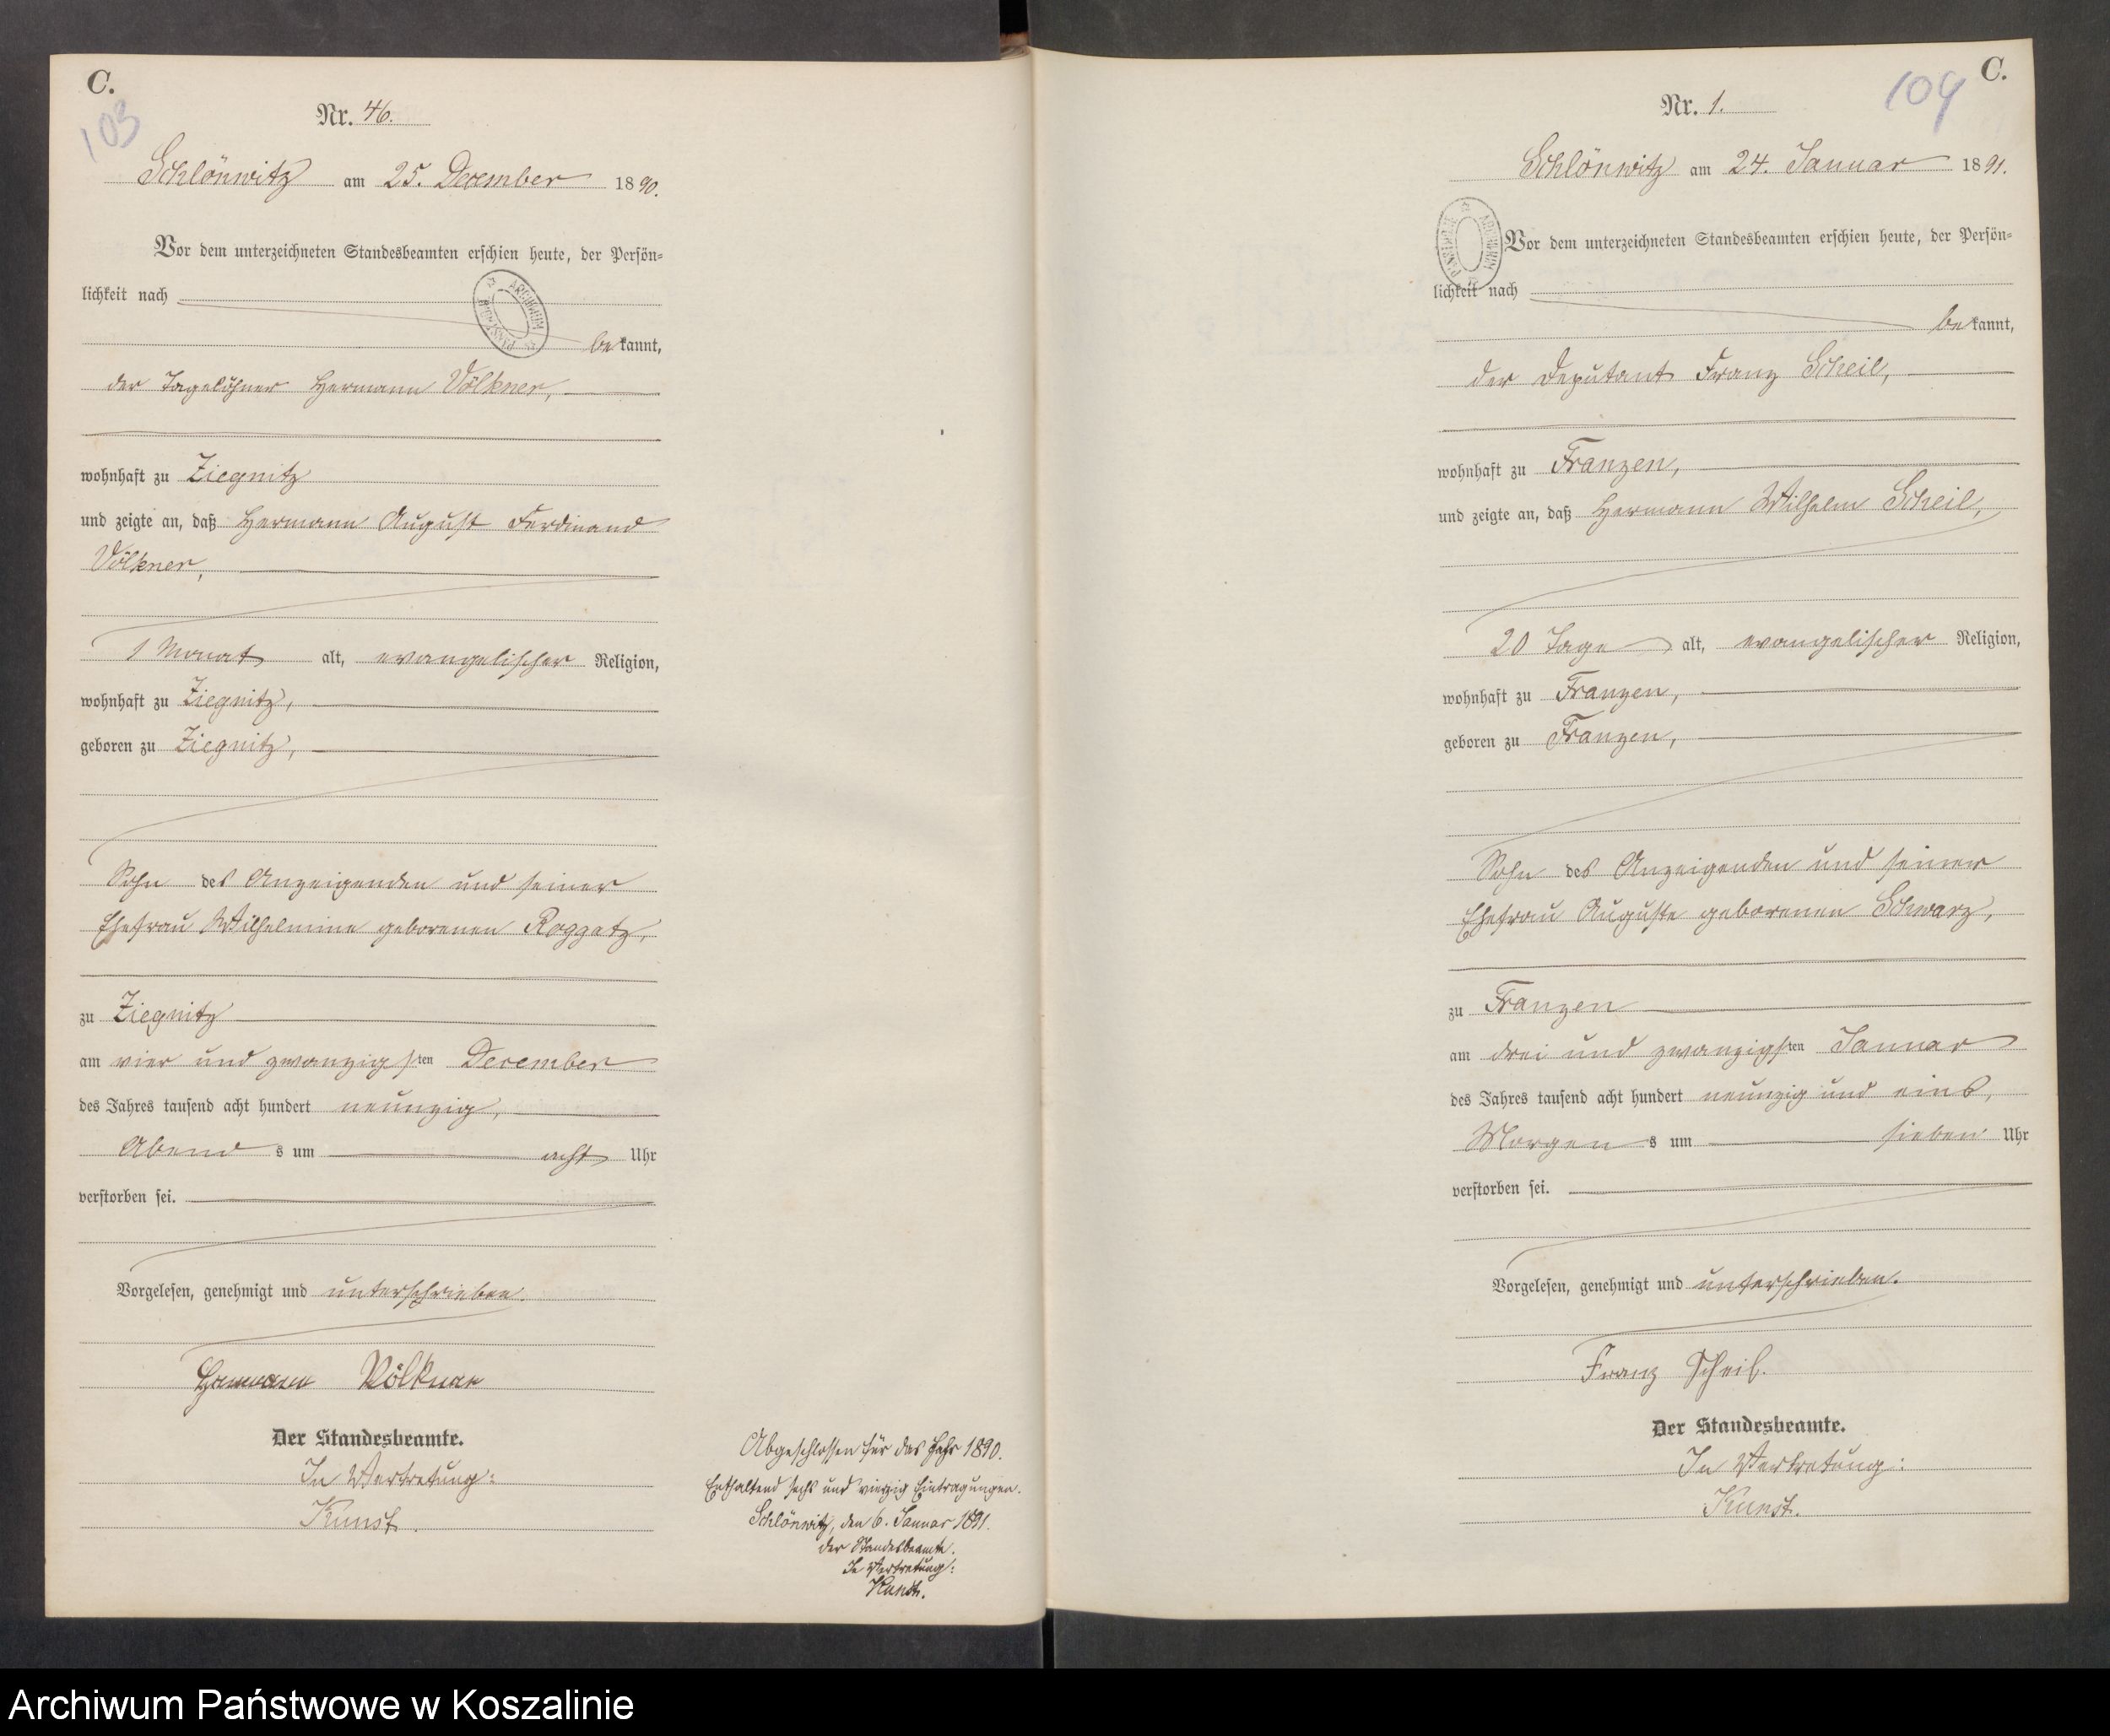 C.
103
Nr. 46.
Schlönwitz am 25. December 1890.
Vor dem unterzeichneten Standesbeamten erschien heute, der Persön-
lichkeit nach
bekannt,
der Tagelöhner Hermann Völkner,
wohnhaft zu Ziegnitz
und zeigte an, daß Hermann August Ferdinand
Völkner,
1 Monat alt, evangelischer Religion,
wohnhaft zu Ziegnitz,
geboren zu Ziegnitz,
Sohn des Anzeigenden und seiner
Ehefrau Wilhelmine geborenen Roggatz,
zu Ziegnitz
am vier und zwanzigsten December
des Jahres tausend acht hundert neunzig,
Abends um acht Uhr
verstorben sei.
Vorgelesen, genehmigt und unterschrieben.
Hermann Völkner
Der Standesbeamte.
In Vertretung:
Kunst.
Abgeschlossen für das Jahr 1890.
Enthaltend sechs und vierzig Eintragungen.
Schlönwitz, den 6. Januar 1891.
Der Standesbeamte.
In Vertretung:
Kunst.
C.
104
Nr. 1.
Schlönwitz am 24. Januar 1891.
Vor dem unterzeichneten Standesbeamten erschien heute, der Persön-
lichkeit nach
bekannt,
der Deputant Franz Scheil,
wohnhaft zu Franzen,
und zeigte an, daß Hermann Wilhelm Scheil,
20 Tage alt, evangelischer Religion,
wohnhaft zu Franzen,
geboren zu Franzen,
Sohn des Anzeigenden und seiner
Ehefrau Auguste geborenen Schwarz,
zu Franzen
am drei und zwanzigsten Januar
des Jahres tausend acht hundert neunzig und eins,
Morgens um sieben Uhr
verstorben sei.
Vorgelesen, genehmigt und unterschrieben.
Franz Scheil.
Der Standesbeamte.
In Vertretung:
Kunst.
Archiwum Państwowe w Koszalinie